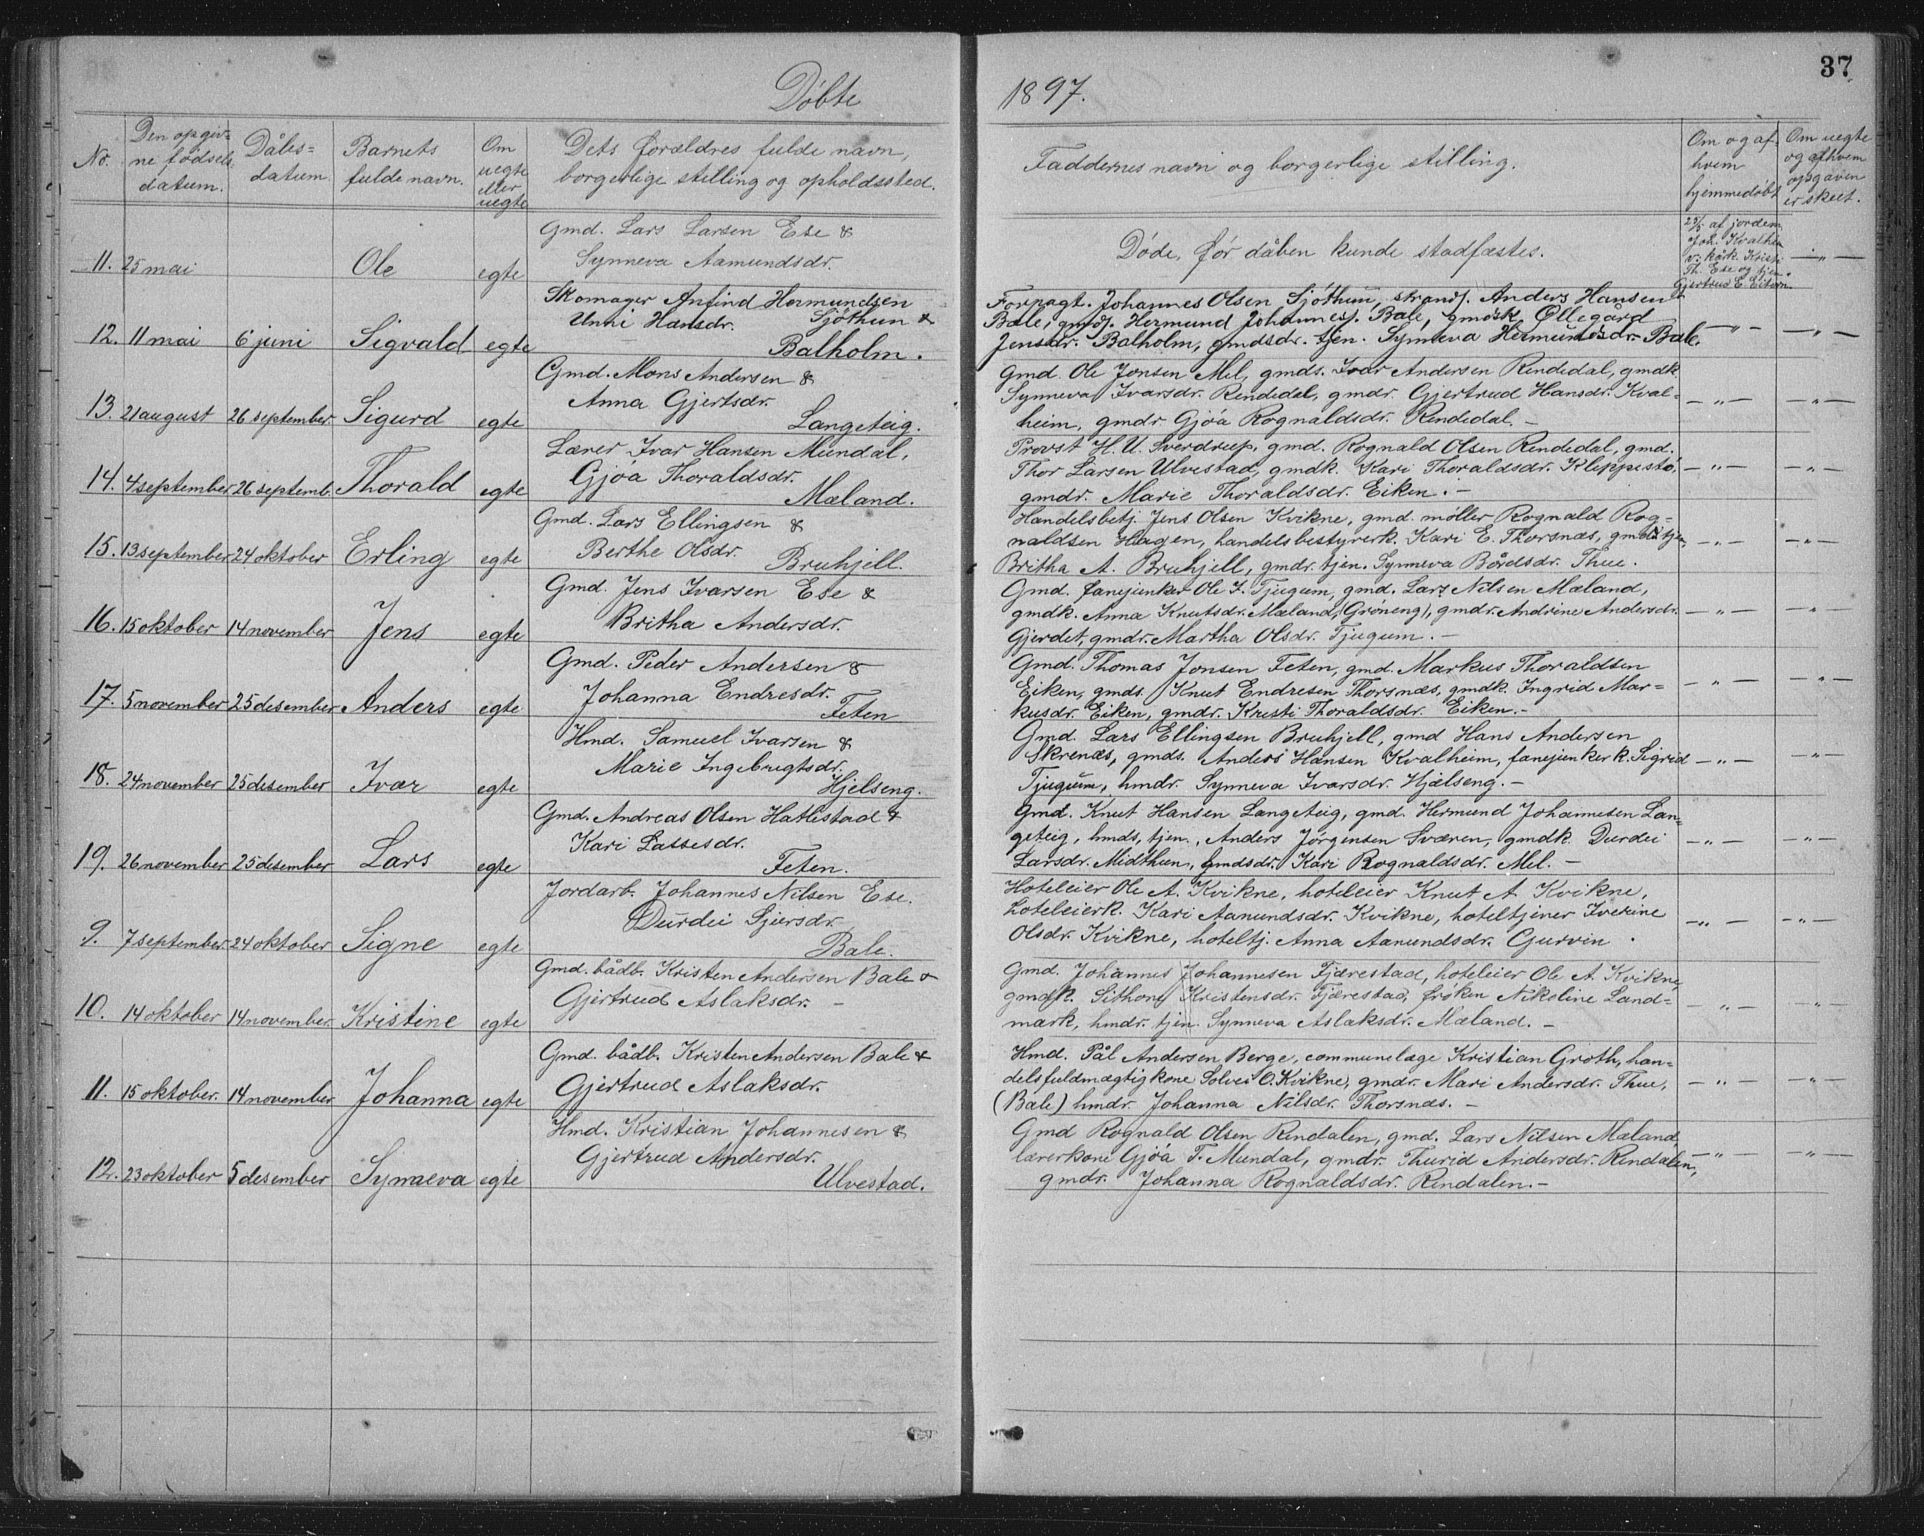 Døbte
1897.
37
No.
Den opgiv-
ne fødsels
datum.
Dåbs-
datum
Barnets
fulde navn.
Om
uegte
eller
uegte
Dets forældres fulde navn,
borgerlige stilling og opholdssted.
Faddernes navn og borgerlige stilling.
Om og af
hvem
hjemmedøbt
Om uegte
og af hvem
opgaven
er skeet.
11. 25 mai Ole egte
Gmd. Lars Larsen Ese &
Synneva Aamundsdr.
Døde, før dåben kunde stadfæstes.
25/5 af jordem.
Joh. Kvalheim
v. kårk. Kristi
Th. Ese og tjen.
Gjertrud E. Eitern.
— " —
12. 11 mai 6 juni Sigvald egte
Skomager Anfind Hermundsen
Unni Hansdr. Sjøthun &
Balholm.
Forpagt. Johannes Olsen Sjøthun, strands. Anders Hansen
Bale, gmds. Hermund Johanness. Bale, gmdsk. Øllegård
Jensdr. Balholm, gmdsdr. tjen. Synneva Hermundsdr. Bale.
— " — — " —
13. 21 august 26 september Sigurd egte
Gmd. Mons Andersen &
Anna Gjertsdr.
Langeteig.
Gmd. Ole Jonsen Mel, gmds. Ivar Andersen Rendedal, gmdk
Synneva Ivarsdr. Rendedal, gmdr. Gjertrud Hansdr. Kval-
heim, gmdr Gjøa Rognaldsdr. Rendedal. —
— " — — " —
14. 4 september 26 septemb. Thorald egte
Lærer Ivar Hansen Mundal,
Gjøa Thoraldsdr.
Mæland.
Provst H. U. Sverdrup, gmd. Rognald Olsen Rendedal, gmd.
Thor Larsen Ulvestad, gmdk. Kari Thoraldsdr. Kleppestø,
gmdr. Marie Thoraldsdr. Eiken. —
— " — — " —
15. 13 september 24 oktober Erling egte
Gmd. Lars Ellingsen &
Berthe Olsdr.
Bruhjell.
Handelsbetj. Jens Olsen Kvikne, gmd. møller Rognald Rog-
naldsen Hagen, handelsbestyrerk. Kari E. Thorsnæs, gmdr. tjen
Britha A. Bruhjell, gmdr. tjen. Synneva Bårdsdr. Thue.
— " — — " —
16. 15 oktober 14 november Jens egte
Gmd. Jens Ivarsen Ese &
Britha Andersdr.
Gmd. fanejunker Ole J. Tjugum, gmd. Lars Nilsen Mæland,
gmdk. Anna Knutsdr. Mæland, (Grøneng), gmdr. Andrine Andersdr.
Gjerdet, gmdr. Martha Olsdr. Tjugum. —
— " — — " —
17. 5 november 25 desember Anders egte
Gmd. Peder Andersen &
Johanna Endresdr.
Feten
Gmd. Thomas Jonsen Feten, gmd. Markus Thoraldsen
Eiken, gmds. Knut Endresen Thorsnæs, gmdk. Ingrid Mar-
kusdr. Eiken, gmdr. Kristi Thoraldsdr. Eiken. —
— " — — " —
18. 24 november 25 desember Ivar egte
Hmd. Samuel Ivarsen &
Marie Ingebrigtsdr.
Hjelseng.
Gmd. Lars Ellingsen Bruhjell, gmd Hans Andersen
Skrenæs, gmds. Anders Hansen Kvalheim, fanejunkerk. Sigrid
Tjugum, hmdr. Synneva Ivarsdr. Hjælseng. —
— " — — " —
19. 26 november 25 desember Lars egte
Gmd. Andreas Olsen Hatlestad &
Kari Lassesdr.
Feten.
Gmd. Knut Hansen Langeteig, gmd. Hermund Johannesen Lan-
geteig, hmds. tjen., Anders Jørgensen Sværen, gmdk. Durdei
Larsdr. Midthun, gmdsdr. Kari Rognaldsdr. Mel. —
— " — — " —
9. 7 september 24 oktober Signe egte
Jordarb. Johannes Nilsen Ese.
Durdei Sjursdr.
Bale.
Hoteleier Ole A. Kvikne, hoteleier Knut A. Kvikne,
hoteleierk. Kari Aamundsdr. Kvikne, hoteltjener Iverine
Olsdr. Kvikne, hoteltj. Anna Aamundsdr. Gurvin.
— " — — " —
10. 14 oktober 14 november Kristine egte
Gmd. bådb. Kristen Andersen Bale &
Gjertrud Aslaksdr. —
Gmd. Johannes Johannesen Fjærestad, hoteleier Ole A. Kvikne,
gmdk. Sithone Kristensdr. Fjærestad, frøken Nikoline Land-
mark, hmdr. tjen. Synneva Aslaksdr. Mæland. —
— " — — " —
11. 15 oktober. 14 november Johanna egte
Gmd. bådb. Kristen Andersen Bale &
Gjertrud Aslaksdr.
Hmd. Pål Andersen Berge, communelæge Kristian Groth, han-
delsfuldmægtigkone Solvei O. Kvikne, gmdr. Mari Andersdr. Thue,
(Bale) hmdr. Johanna Nilsdr. Thorsnæs. —
— " — — " —
12. 23 oktober 5 desember Synneva egte
Hmd. Kristian Johannesen &
Gjertrud Andersdr.
Ulvestad.
Gmd Rognald Olsen Rendalen, gmd. Lars Nilsen Mæland
lærerkone Gjøa T. Mundal, gmdr. Thurid Andersdr. Rendalen,
gmdr. Johanna Rognaldsdr. Rendalen. —
— " — — " —